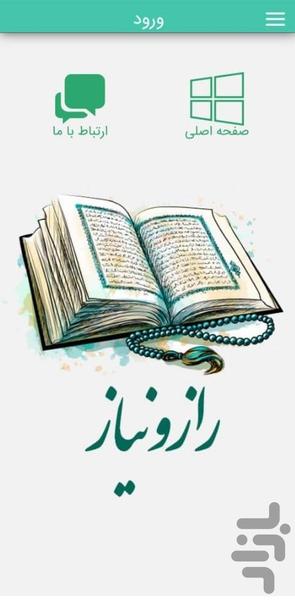 ورود
صفحه اصلی
ارتباط با ما
راز و نیاز
بازار